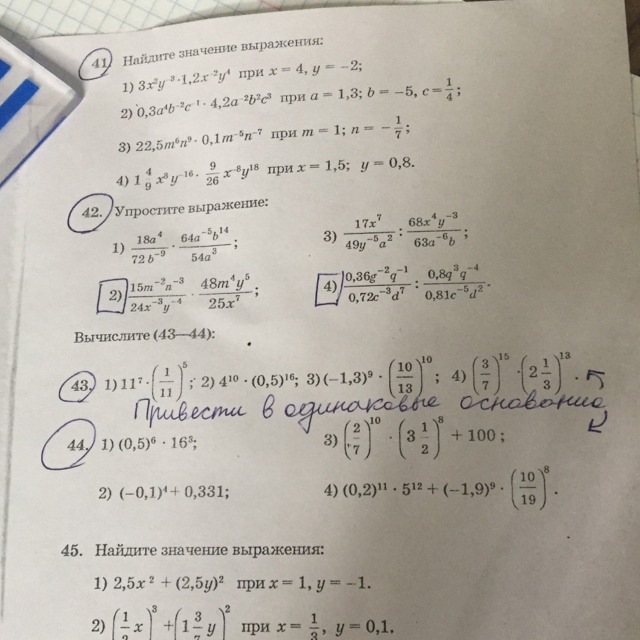 41. Найдите значение выражения:
1) 3x²y⁻³·1,2x⁻²y⁴ при x = 4, y = −2;
2) 0,3a⁴b⁻²c⁻¹ · 4,2a⁻²b²c³ при a = 1,3; b = −5, c = 1/4;
3) 22,5m⁶n⁹ · 0,1m⁻⁵n⁻⁷ при m = 1; n = −1/7;
4) 1 4/9 x⁸y⁻¹⁶ · 9/26 x⁻⁸y¹⁸ при x = 1,5; y = 0,8.
42. Упростите выражение:
1) 18a⁴/72b⁻⁹ · 64a⁻⁵b¹⁴/54a³; 3) 17x⁷/49y⁻⁵a² : 68x⁴y⁻³/63a⁻⁶b;
2) 15m⁻²n⁻³/24x⁻³y⁻⁴ · 48m⁴y⁵/25x⁷; 4) 0,36g⁻²q⁻¹/0,72c⁻³d⁷ : 0,8q³q⁻⁴/0,81c⁻⁵d².
Вычислите (43—44):
43. 1) 11⁷ · (1/11)⁵; 2) 4¹⁰ · (0,5)¹⁶; 3) (−1,3)⁹ · (10/13)¹⁰; 4) (3/7)¹⁵ · (2 1/3)¹³.
Привести в одинаковые основание
44. 1) (0,5)⁶ · 16³; 3) (2/7)¹⁰ · (3 1/2)⁸ + 100;
2) (−0,1)⁴ + 0,331; 4) (0,2)¹¹ · 5¹² + (−1,9)⁹ · (10/19)⁸.
45. Найдите значение выражения:
1) 2,5x² + (2,5y)² при x = 1, y = −1.
2) (1/2 x)³ + (1 3/7 y)² при x = 1/3, y = 0,1.